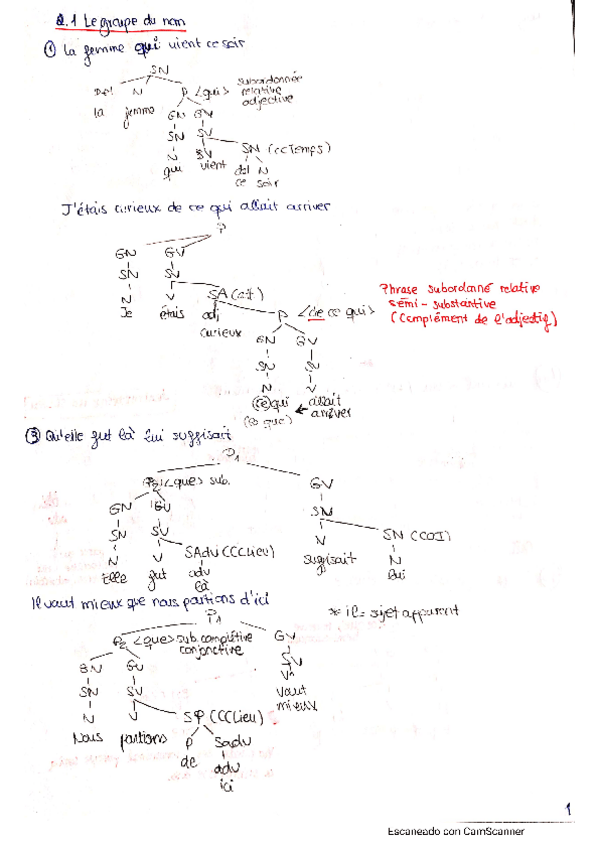 2.1 Le groupe du nom
① La femme qui vient ce soir
SN
Det N P <qui> subordonnée
relative
adjective
la femme GN GV
SN SV
N SV SN (CCTemps)
qui vient det N
ce soir
J'étais curieux de ce qui allait arriver
P
GN GV
SN SV
N V SA (att)
Je étais adj P <de ce qui>
curieux
Phrase subordonné relative
sémi-substantive
(Complément de l'adjectif)
GN GV
SN SV
N V
(ce) qui allait
arriver
(ce que)
③ Qu'elle fut là lui suffisait
P1
P2 <que> sub. GV
GN GV SN
SN SV V SN (COI)
N V SAdv (CCLieu) suffisait N
Elle fut adv lui
là
Il vaut mieux que nous partions d'ici
* il = sujet apparent
P1
P2 <que> sub. complétive
conjonctive
GV
GN GV SV
SN SV V
N V SP (CCLieu) vaut
mieux
Nous partions P Sadv
de adv
ici
1
Escaneado con CamScanner